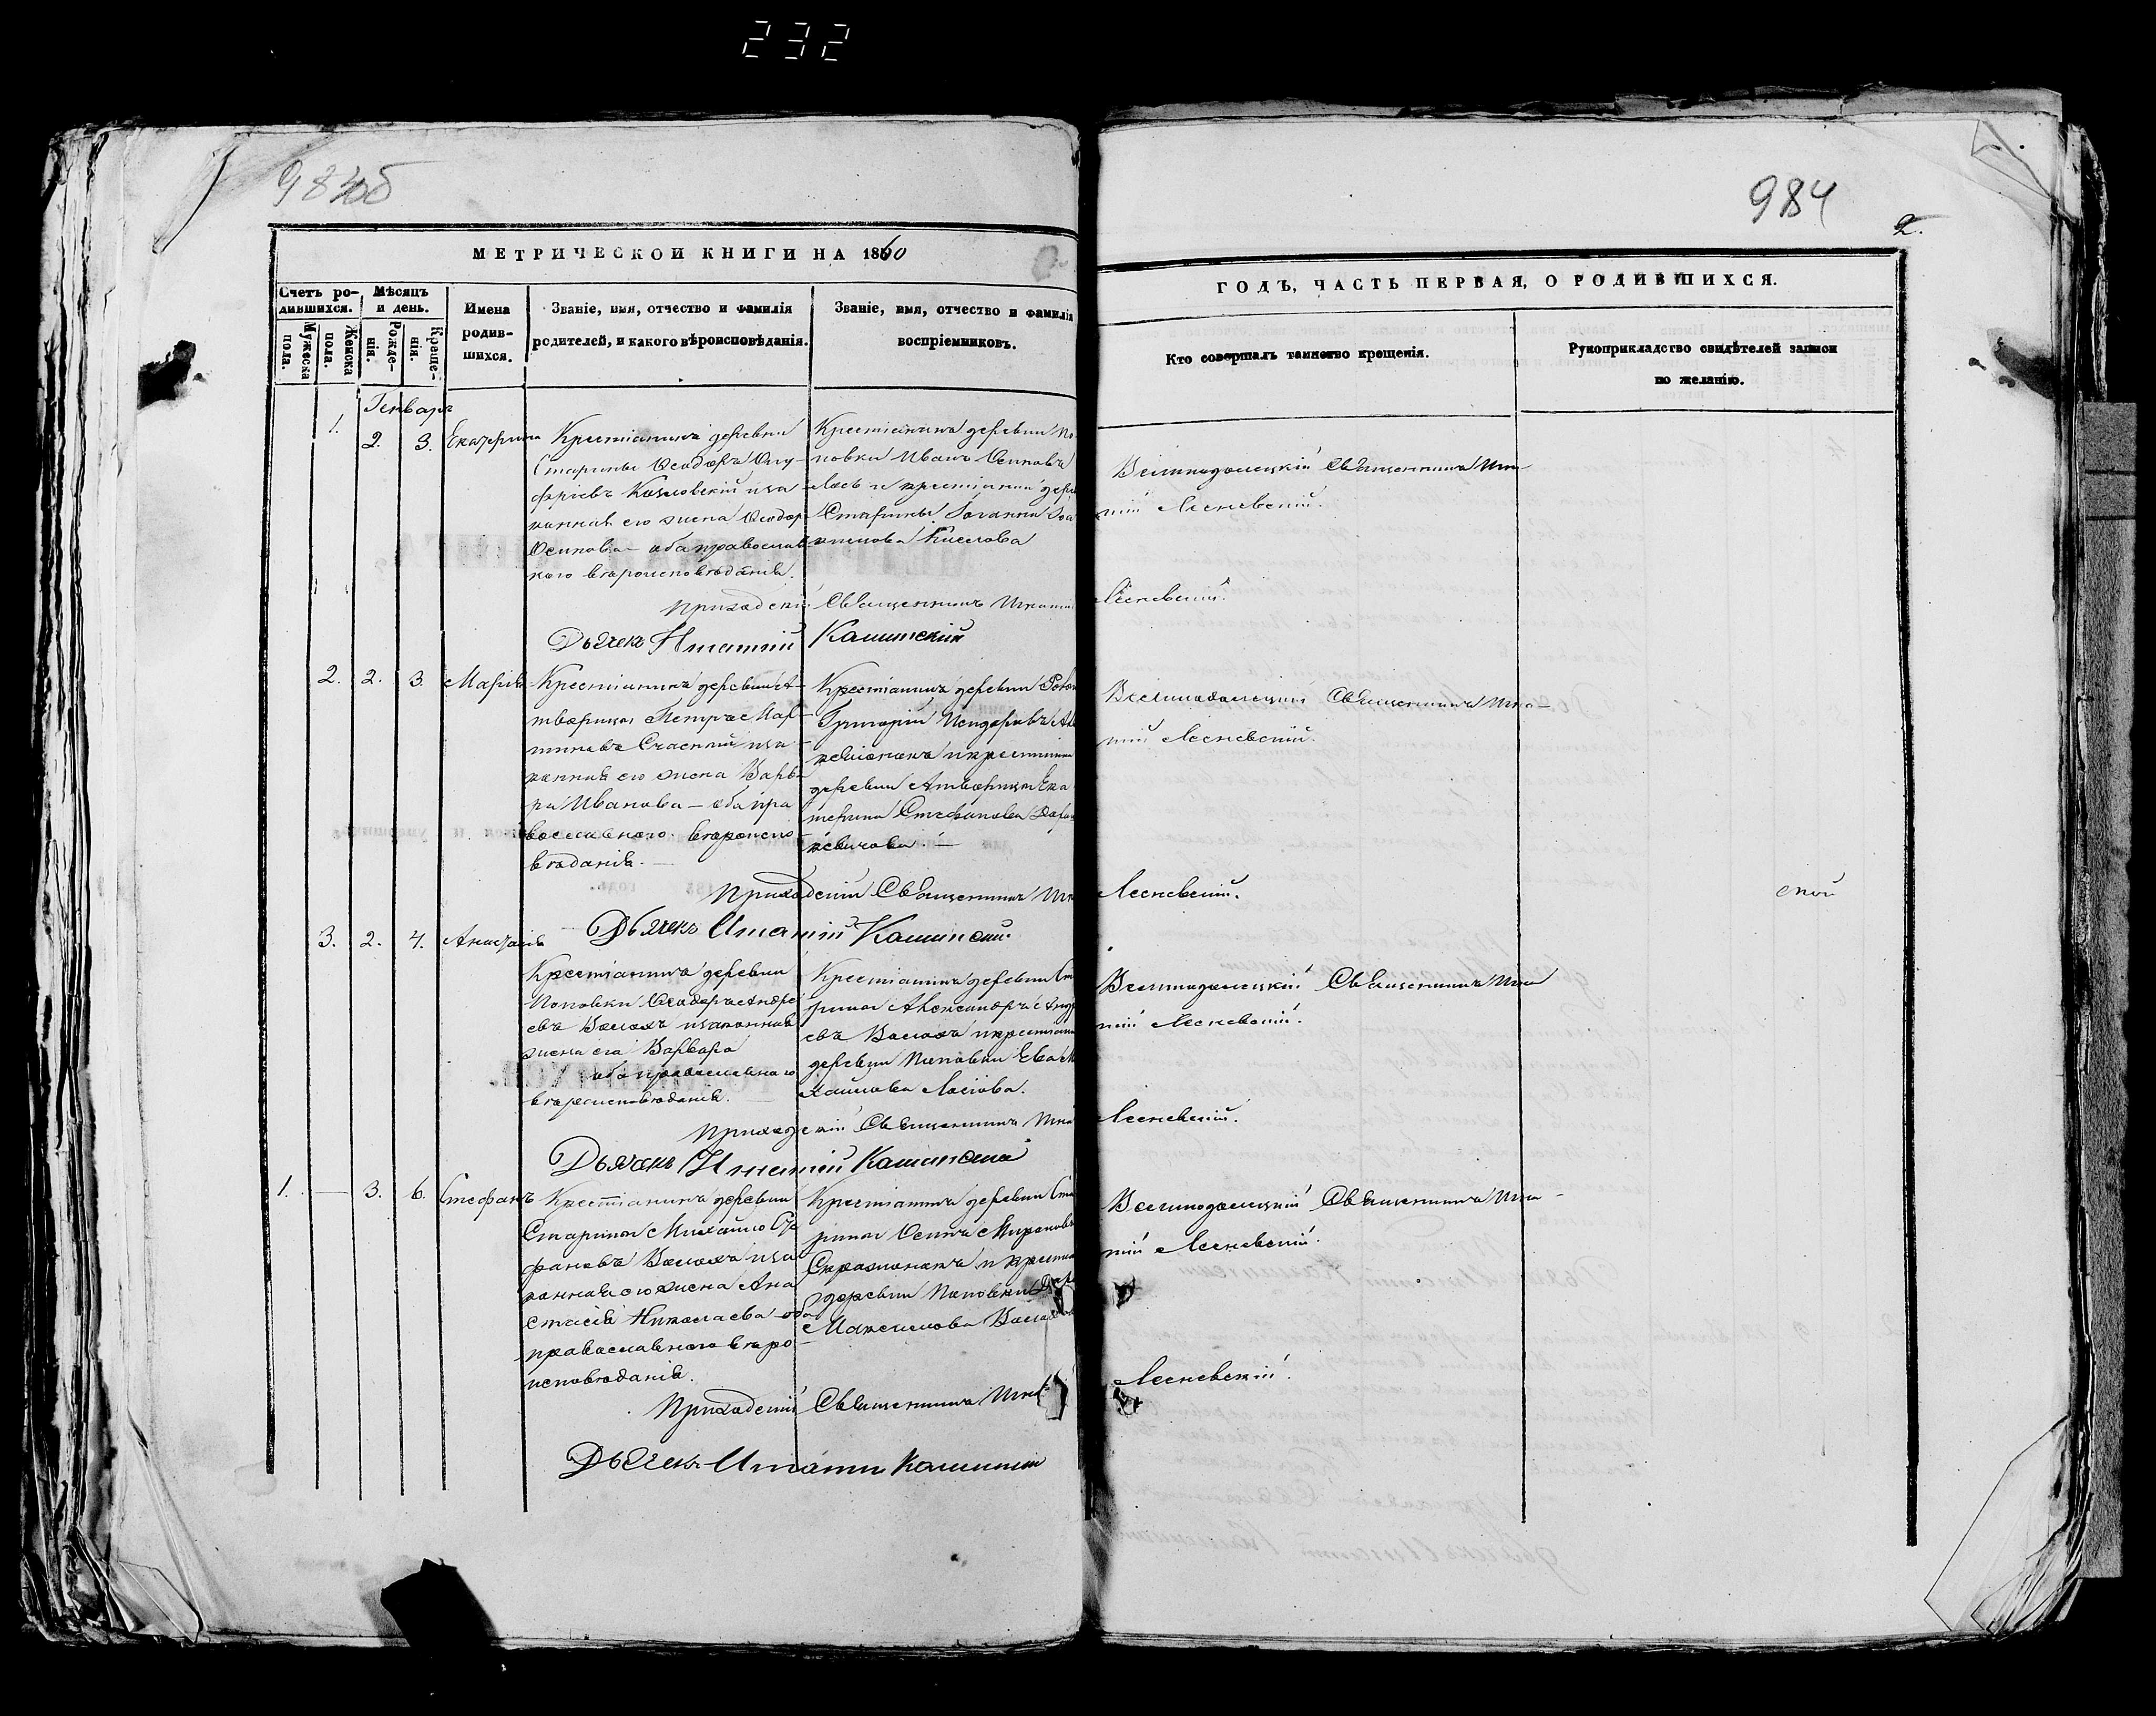 232
983об
984
2.
МЕТРИЧЕСКОЙ КНИГИ НА 1860
ГОДЪ, ЧАСТЬ ПЕРВАЯ, О РОДИВШИХСЯ.
Счетъ ро-
дившихся.
Мужеска
пола.
Женска
пола.
Мѣсяцъ
и день.
Рожде-
нія.
Креще-
нія.
Имена
родив-
шихся.
Званіе, имя, отчество и фамилія
родителей, и какого вѣроисповѣданія.
Званіе, имя, отчество и фамилія
воспріемниковъ.
Кто совершалъ таинство крещенія.
Рукоприкладство свидѣтелей записи
по желанію.
Генварь
1. 2. 3. Екатерина
Крестіянинъ деревни
Старины Ѳеодоръ Ону-
фріевъ Козловскій и за-
конная его жена Ѳеодор
Осипова - оба православ-
ного вѣроисповѣданія.
Крестіянинъ деревни По
повки Иванъ Осиповъ
Лось и крестіянки дере
Старины Іоанна Іоа
кимова Киселова
Велинодолецкій Священникъ Игна
тій Лесневскій.
Приходскій Священникъ Игнатій Лесневскій.
Дьячекъ Игнатій
2. 2. 3. Марія
Крестіянинъ деревни А-
творицы Петръ Мар-
тиновъ Счасный и за-
конная его жена Варва
ра Иванова - оба пра
вославного вѣроиспо-
вѣданія.
Крестіянинъ деревни
Григорій
и крестіянка
деревни Атворицы Ека
терина Стефанова
Священникъ Игна-
тій Лесневскій.
Приходскій Священникъ Игн Лесневскій.
ской
Дьячекъ Игнатій
3. 2. 4. Анастасія
Крестіянинъ деревни
Поповки Ѳеодоръ Андре
евъ Волохъ и законная
жена его Варвара
оба православного
вѣроисповѣданія.
Крестіянинъ деревни Ста
рины Александръ Андре
евъ Волохъ и крестіянка
деревни Поповки Ева Ми
хайлова Лосіова.
Священникъ Игна
тій Лесневскій.
Приходскій Священникъ Игна Лесневскій.
Дьячекъ Игнатій
1. — 3. 6. Стефанъ
Крестіянинъ деревни
Старины Михаилъ Сте
фановъ Волохъ и за-
конная его жена Ана
стасія Николаева оба
православного вѣро-
исповѣданія.
Крестіянинъ деревни Ста
рины Осипъ Мироновъ
и крестіян
деревни Поповки
Максимова
Священникъ Игна-
тій Лесневскій.
Приходскій Священникъ Игна Лесневскій.
Дьячекъ Игнатій